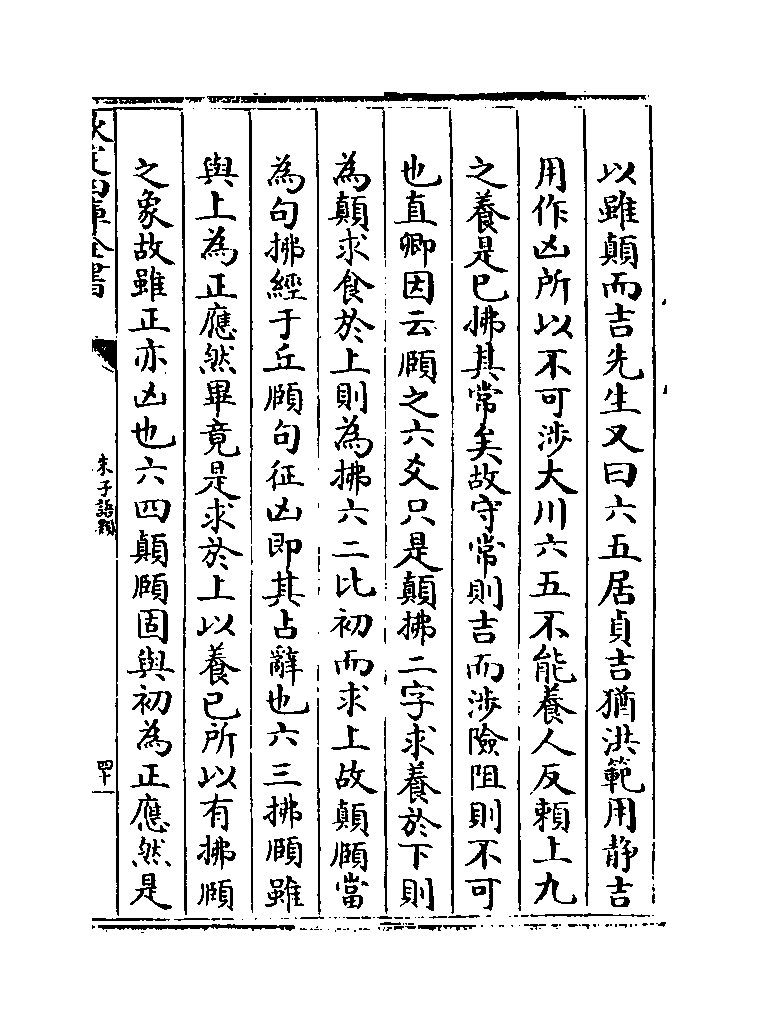 以雖顛而吉先生又曰六五居貞吉猶洪範用静吉
用作凶所以不可涉大川六五不能養人反賴上九
之養是已拂其常矣故守常則吉而涉險阻則不可
也直卿因云頤之六爻只是顛拂二字求養於下則
為顛求食於上則為拂六二比初而求上故顛頤當
為句拂經于丘頤句征凶即其占辭也六三拂頤雖
與上為正應然畢竟是求於上以養已所以有拂頤
之象故雖正亦凶也六四顛頤固與初為正應然是
欽定四庫全書
朱子語類
四十一